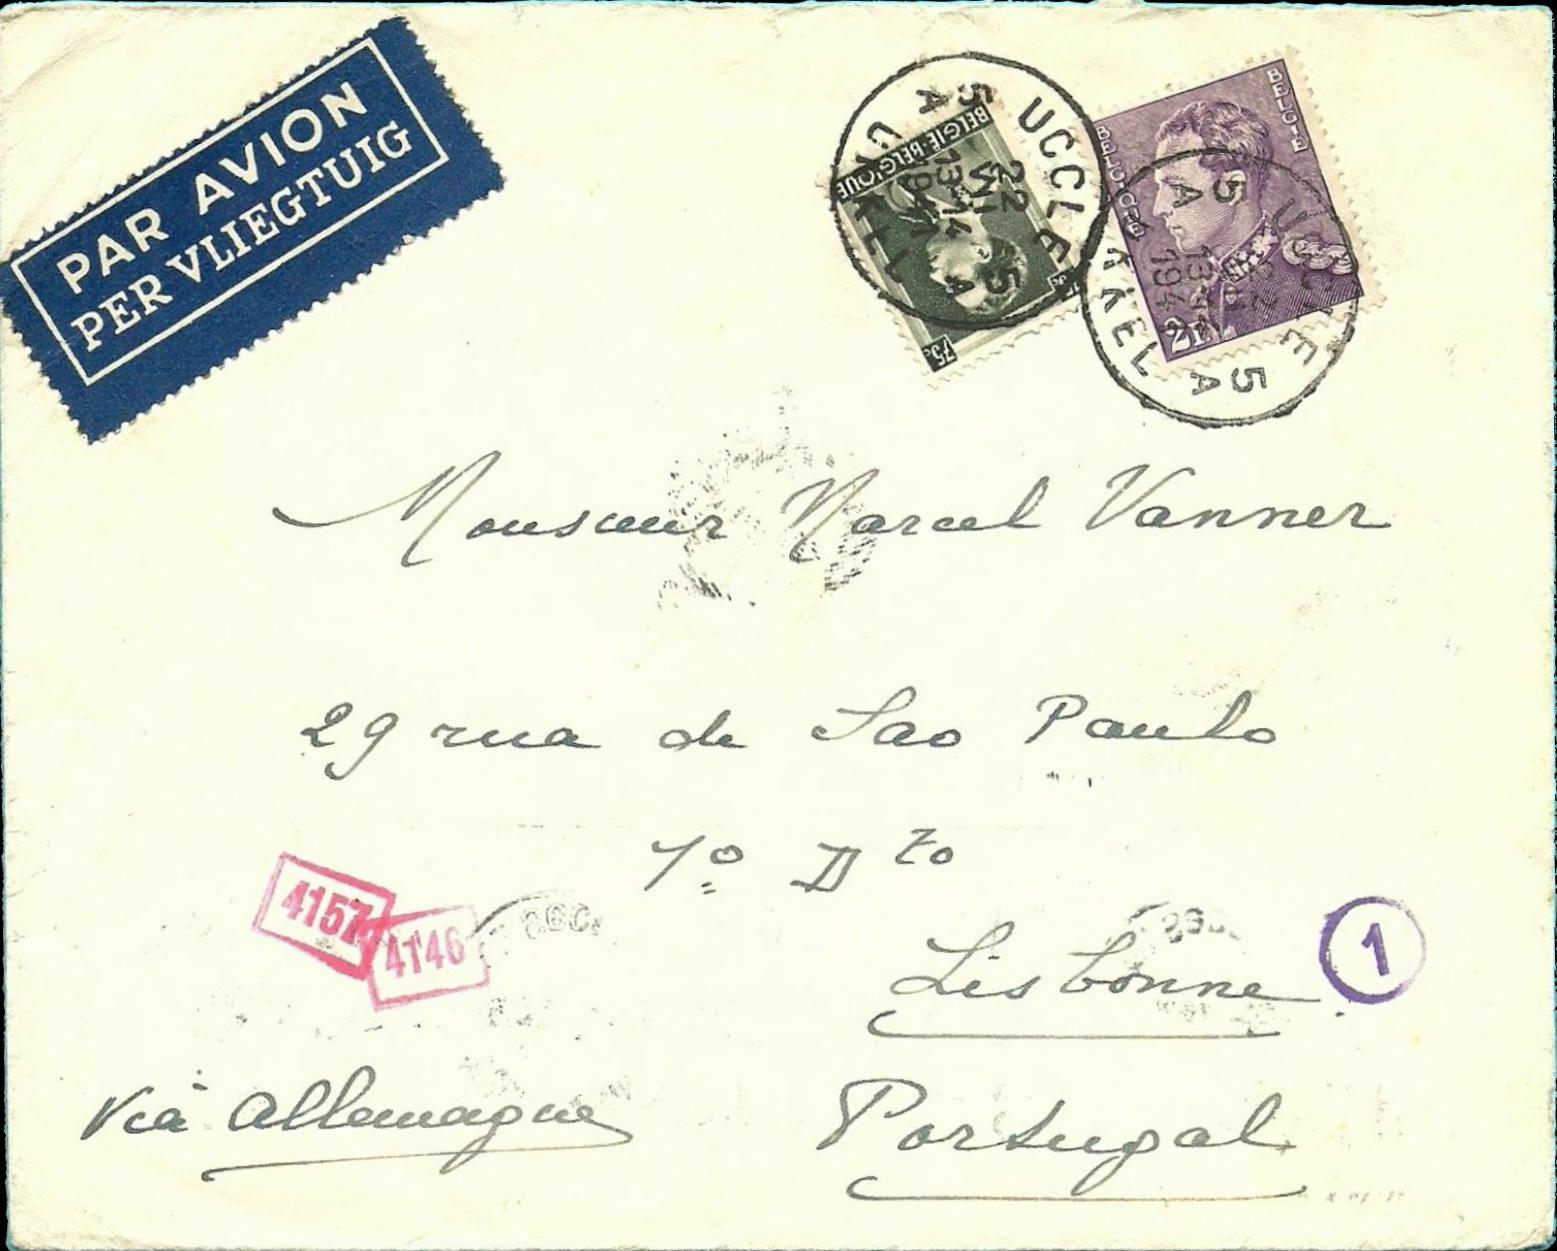 PAR AVION
PER VLIEGTUIG
UCCLE 5 A UKKEL 5 A
22 VII 13-14 194
BELGIE-BELGIQUE
75c
UCCLE 5 A UKKEL 5 A
22 13-14 194
BELGIQUE
BELGIË
2F
Monsieur Marcel Vanner
29 rua de Sao Paulo
1º Dto
4157
4146
Lisbonne
1
Via Allemagne
Portugal